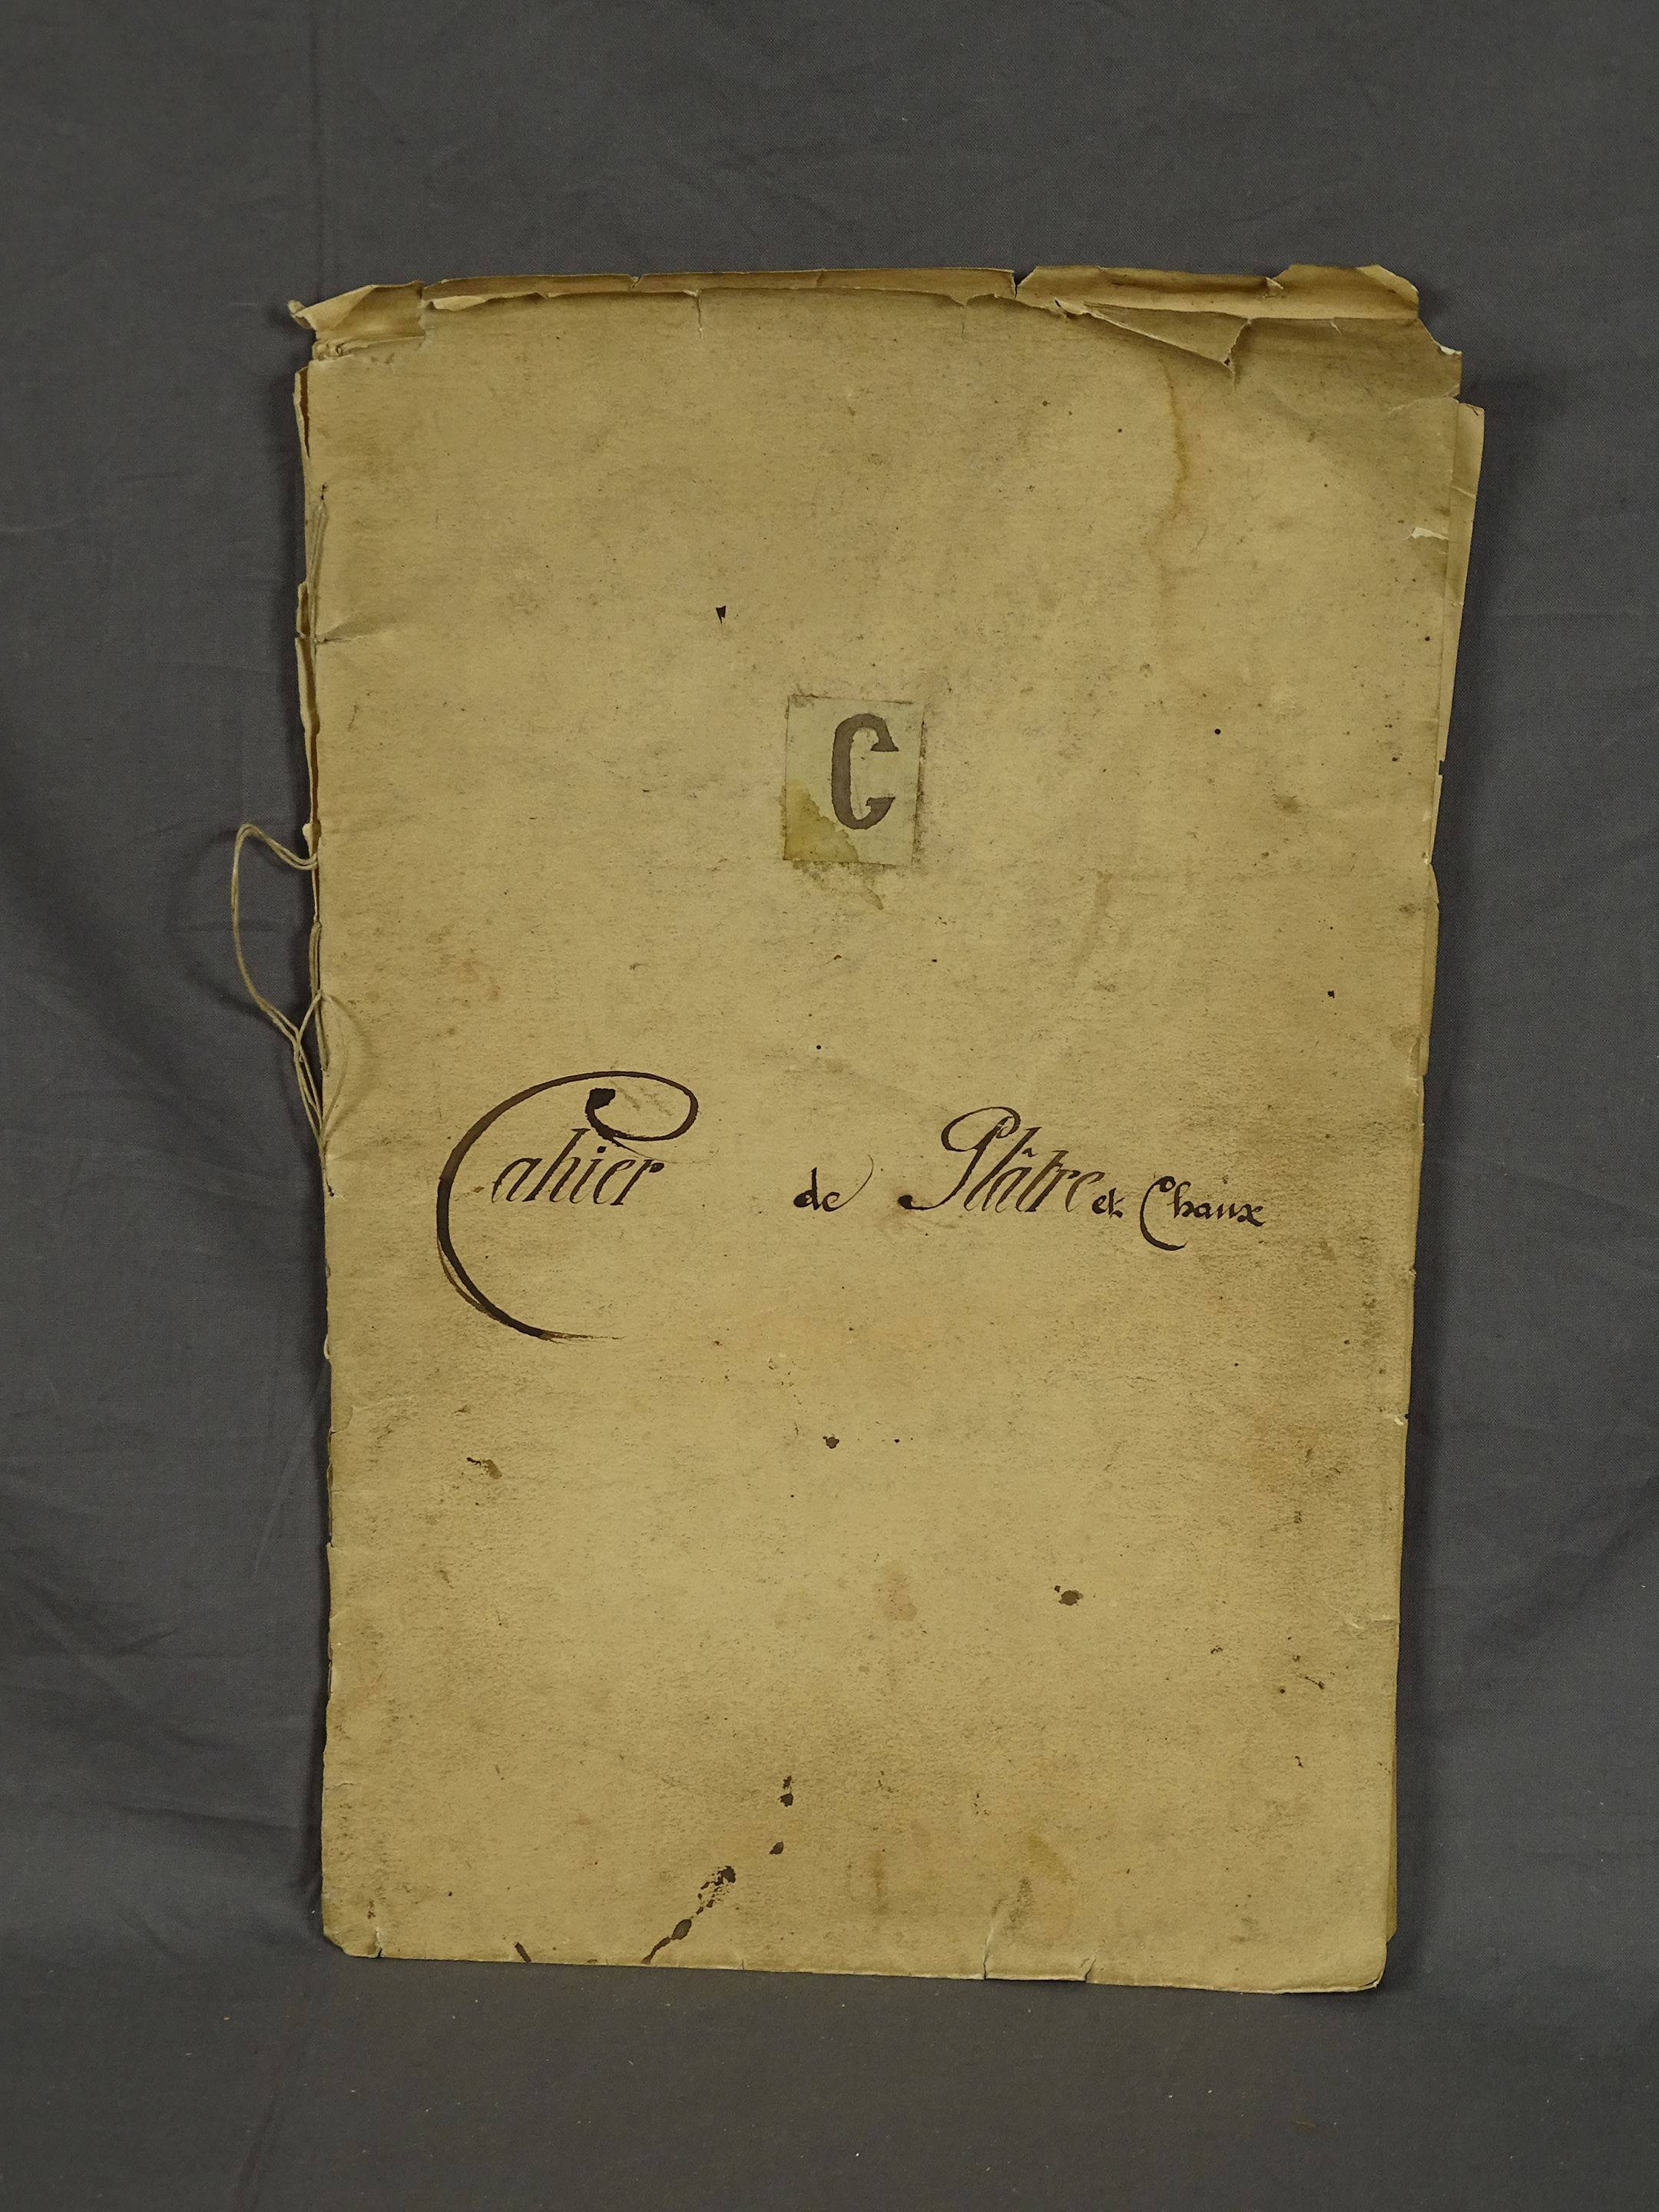 C
Cahier de Plâtre et Chaux